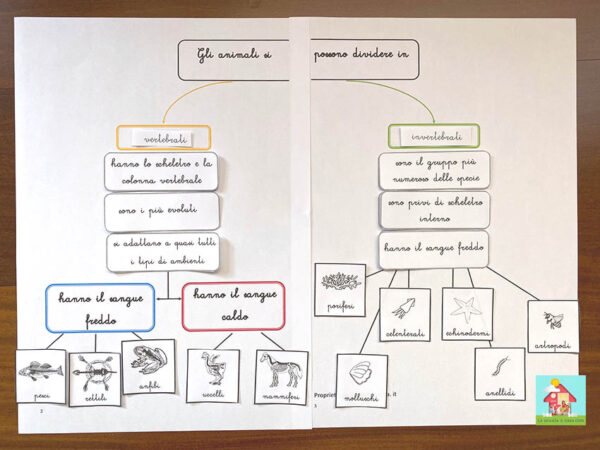 Gli animali si possono dividere in
vertebrati
hanno lo scheletro e la
colonna vertebrale
sono i più evoluti
si adattano a quasi tutti
i tipi di ambienti
hanno il sangue
freddo
hanno il sangue
caldo
pesci
rettili
anfibi
uccelli
mammiferi
2
invertebrati
sono il gruppo più
numeroso delle specie
sono privi di scheletro
interno
hanno il sangue freddo
poriferi
molluschi
celenterati
echinodermi
anellidi
artropodi
Propriet
it
3
La scuola a casa.com